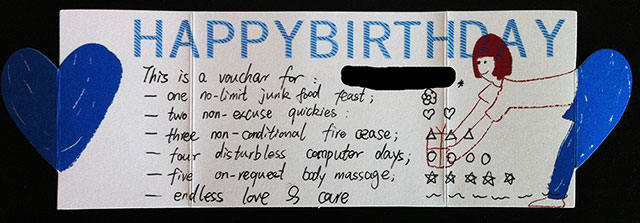 HAPPYBIRTHDAY
This is a vouchar for :
- one no-limit junk food feast;
- two non-excuse quickies:
- three non-conditional fire cease;
- four disturbless computer days;
- five on-request body massage;
- endless love & care